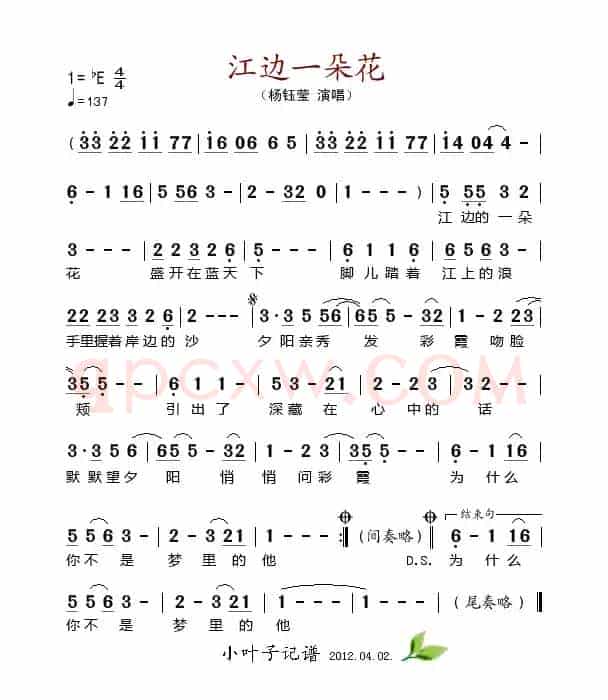 江边一朵花
1=♭E 4/4
♩=137
（杨钰莹 演唱）
(33 22 11 77 | 16 06 65 | 33 22 11 77 | 14 04 4 - |
6 - 1 16 | 5 56 3 - | 2 - 32 0 | 1 - - - ) | 5 55 3 2 |
江 边的 一 朵
3 - - - | 2 23 26 | 5 - - - | 6 1 2 1 | 6 56 5 3 |
花 盛开在蓝天 下 脚 儿 踏 着 江上的浪
22 23 3 2 6 | 2 - - - | 3·3 5 56 | 165 5 - 32 | 1 - 2 23 |
手里握着岸边的 沙 夕阳亲秀 发 彩 霞 吻脸
35 5 - - | 6 1 1 - | 5 3 - 21 | 2 - 2 3 | 3 - 32 1 |
颊 引 出 了 深藏 在 心 中的 话
3·3 5 6 | 165 5 - - | 5·5 5 32 | 1 - - - | 6 - 1 16 |
默 默望夕 阳 悄 悄问彩 霞 为 什么
结束句
5 56 3 - | 2 - 3 21 | 1 - - - :‖ (间奏略) ‖ 6 - 1 16 |
你不 是 梦 里 的 他 D.S. 为 什么
5 56 3 - | 2 - 3 21 | 1 - - - | 1 - - - | (尾奏略) ‖
你不 是 梦 里 的 他
小叶子记谱 2012.04.02.
qpcxw.COM